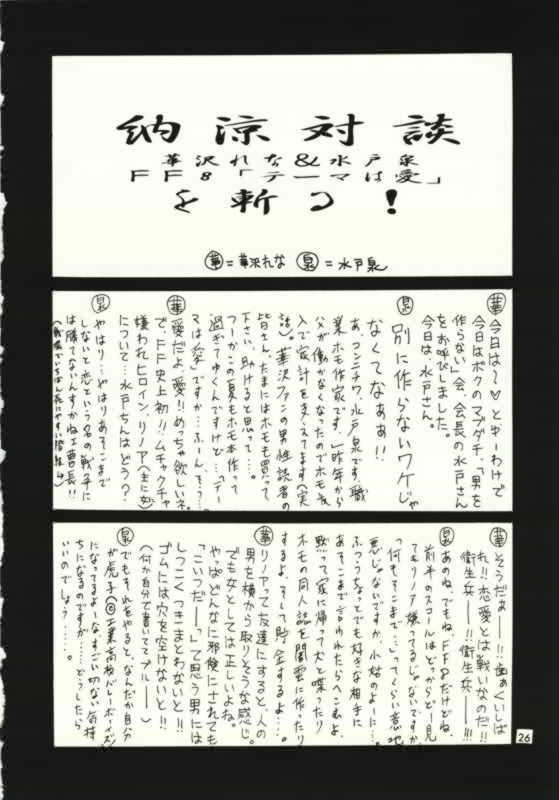 納涼対談
華沢れな&水戸泉
FF8「テーマは愛」
を斬る!
華=華沢れな 泉=水戸泉
華 今日は〜♡とゆーわけで
今日はボクのマブダチ、「男を
作らない」会、会長の水戸さん
をお呼びしました。
今日は、水戸さん。
泉 別に作らないワケじゃ
なくてなぁぁ!!
あ、コンニチワ、水戸泉です。職
業ホモ作家です。昨年から
父が働かなくなったのでホモ収
入で家計を支えてます(実
話)。華沢ファンの男性読者の
皆さん、たまにはホモも買って
下さい。助けると思って……。
つーかこの夏もホモ本作って
過ぎてゆくんですけど…。「テー
マは愛」ですか…ふーん、そう…。
華 愛だよ、愛!!めちゃ欲しいネ。
で、FF史上初!!ムチャクチャ
嫌われヒロイン、リノア(主に女)
について…水戸さんはどう?
泉 やはり…やはりあそこまで
しないと恋という名の戦争に
は勝てないんすかね工曹長!!
華 そうだぁ──!!歯ぁくいしば
れ!!恋愛とは戦いなのだ!!
衛生兵──!!衛生兵──!!!
泉 あのね、でもね、FF8だけどね、
前半のスコールはどっからどー見
てもリノア嫌ってるじゃないですか。
「何もそこまで…」ってくらい意地
悪じゃないですか、小姑のように…。
ふつうちょっとでも好きな相手に
あそこまで言われたらへこむよ。
黙って家に帰って犬と喋ったり
ホモの同人誌を闇雲に作ったり
するよ。そして貯金するよ……。
華 リノアって友達にすると、人の
男を横から取りそうな感じ。
でも女としては正しいよね。
やっぱどんなに邪険にされても
「こいつだー」って思う男には
しつこくつきまとわないと!!
ゴムには穴を空けないと!!
(何か自分で書いててブルー──)
泉 でもそれをやると、なんだか自分
が虎子(©工業高校バレーボーイズ)
になってるよーな、すごい切ない気持
ちになるのですが……どっしたら
いいのでしょう……。
26